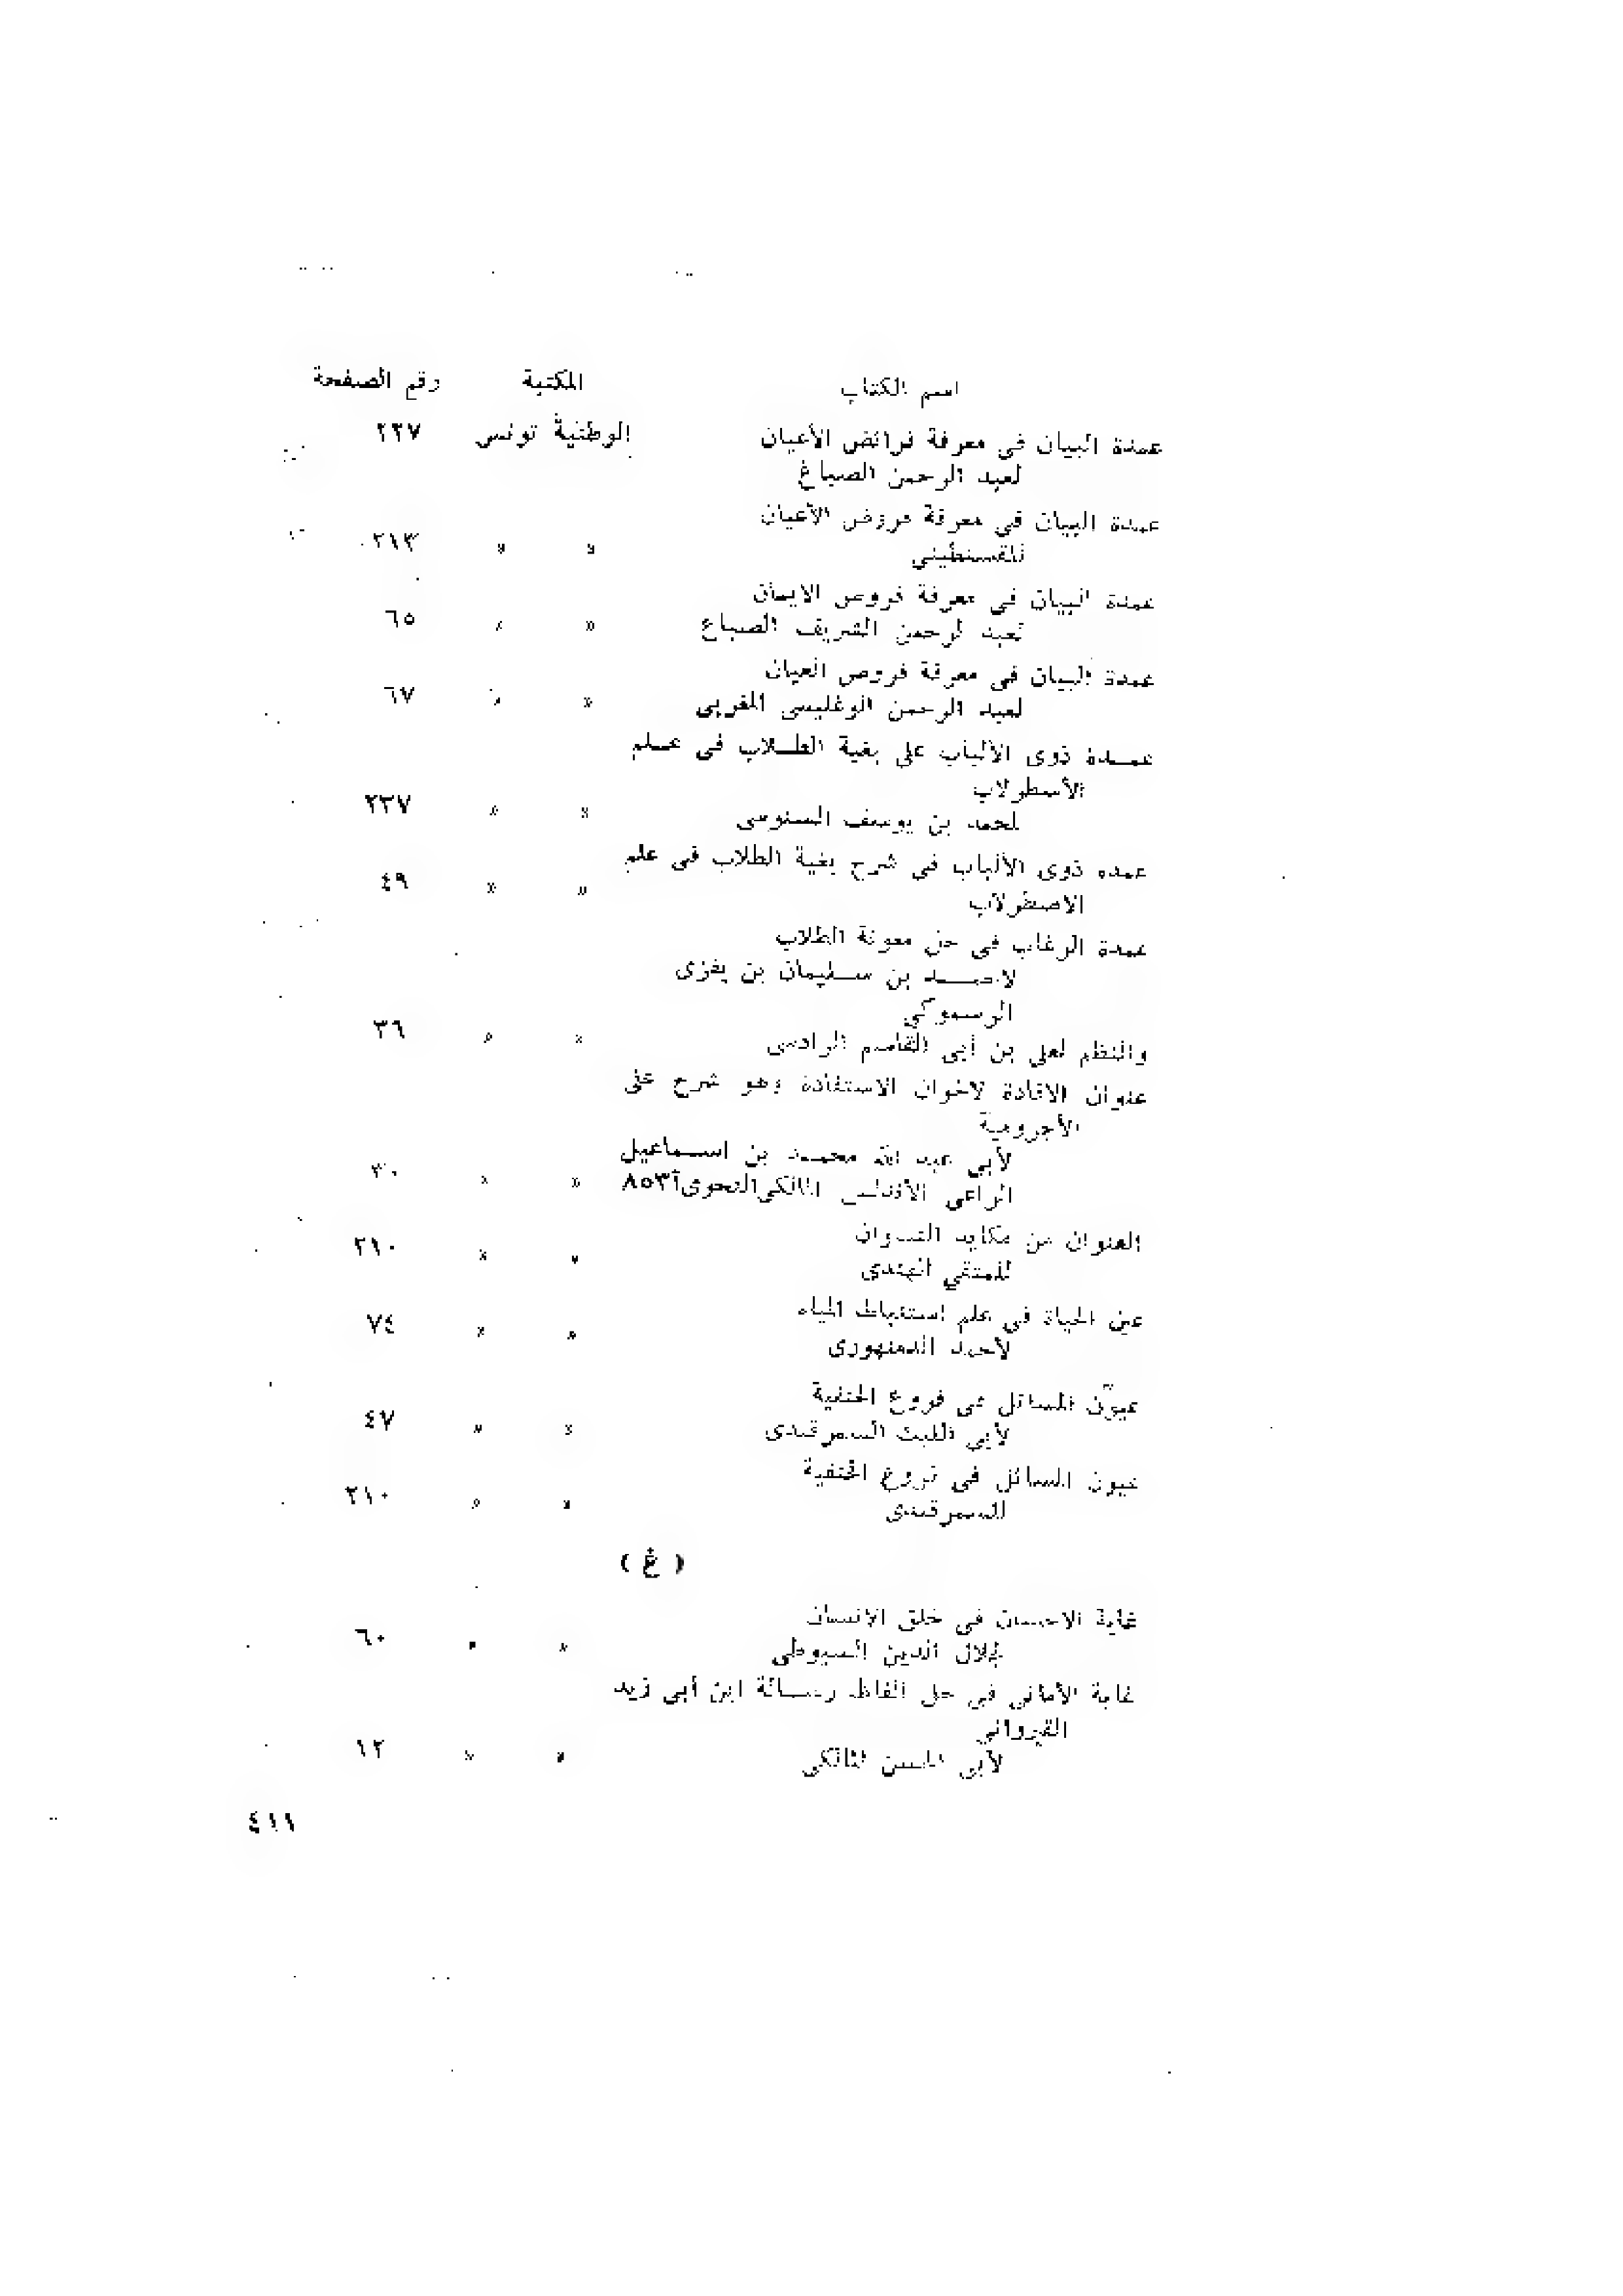 اسم الكتاب المكتبة رقم الصفحة
عمدة البيان فى معرفة فرائض الأعيان الوطنية تونس ٢٢٧
لعبد الرحمن الصباغ
عمدة البيان فى معرفة فروض الأعيان
للقسنطينى » » ٢١٣
عمدة البيان فى معرفة فروض الايمان
لعبد الرحمن الشريف الصباغ » » ٦٥
عمدة البيان فى معرفة فروض العيان
لعبد الرحمن الوغليسى المغربى » » ٦٧
عمدة ذوى الألباب على بغية الطلاب فى علم
الأسطرلاب
لمحمد بن يوسف السنوسى » » ٢٣٧
عمده ذوى الألباب فى شرح بغية الطلاب فى علم
الاصطرلاب » » ٤٩
عمدة الرغاب فى حل معونة الطلاب
لاحمد بن سليمان بن يعزى
الرسموكى
والنظم لعلى بن أبى القاسم الرادسى » » ٣٦
عنوان الافادة لاخوان الاستفادة وهو شرح على
الأجرومية
لأبى عبد الله محمد بن اسماعيل
الراعى الأندلسى المالكى النحوى ٨٥٣ » » ٣٠
العنوان من مكايد النسوان
للمتقي الهندى » » ٢٩٠
عين الحياة فى علم استنباط المياه
لأحمد الدمنهورى » » ٧٤
عيون المسائل فى فروع الحنفية
لأبى الليث السمرقندى » » ٤٧
عيون المسائل فى فروع الحنفية
للسمرقندى » » ٢١٠
( غ )
غاية الاحسان فى خلق الإنسان
لجلال الدين السيوطى » » ٦٠
غاية الأمانى فى حل الفاظ رسالة ابن أبى زيد
القيروانى
لأبى الحسن المالكى » » ١٢
٤١١